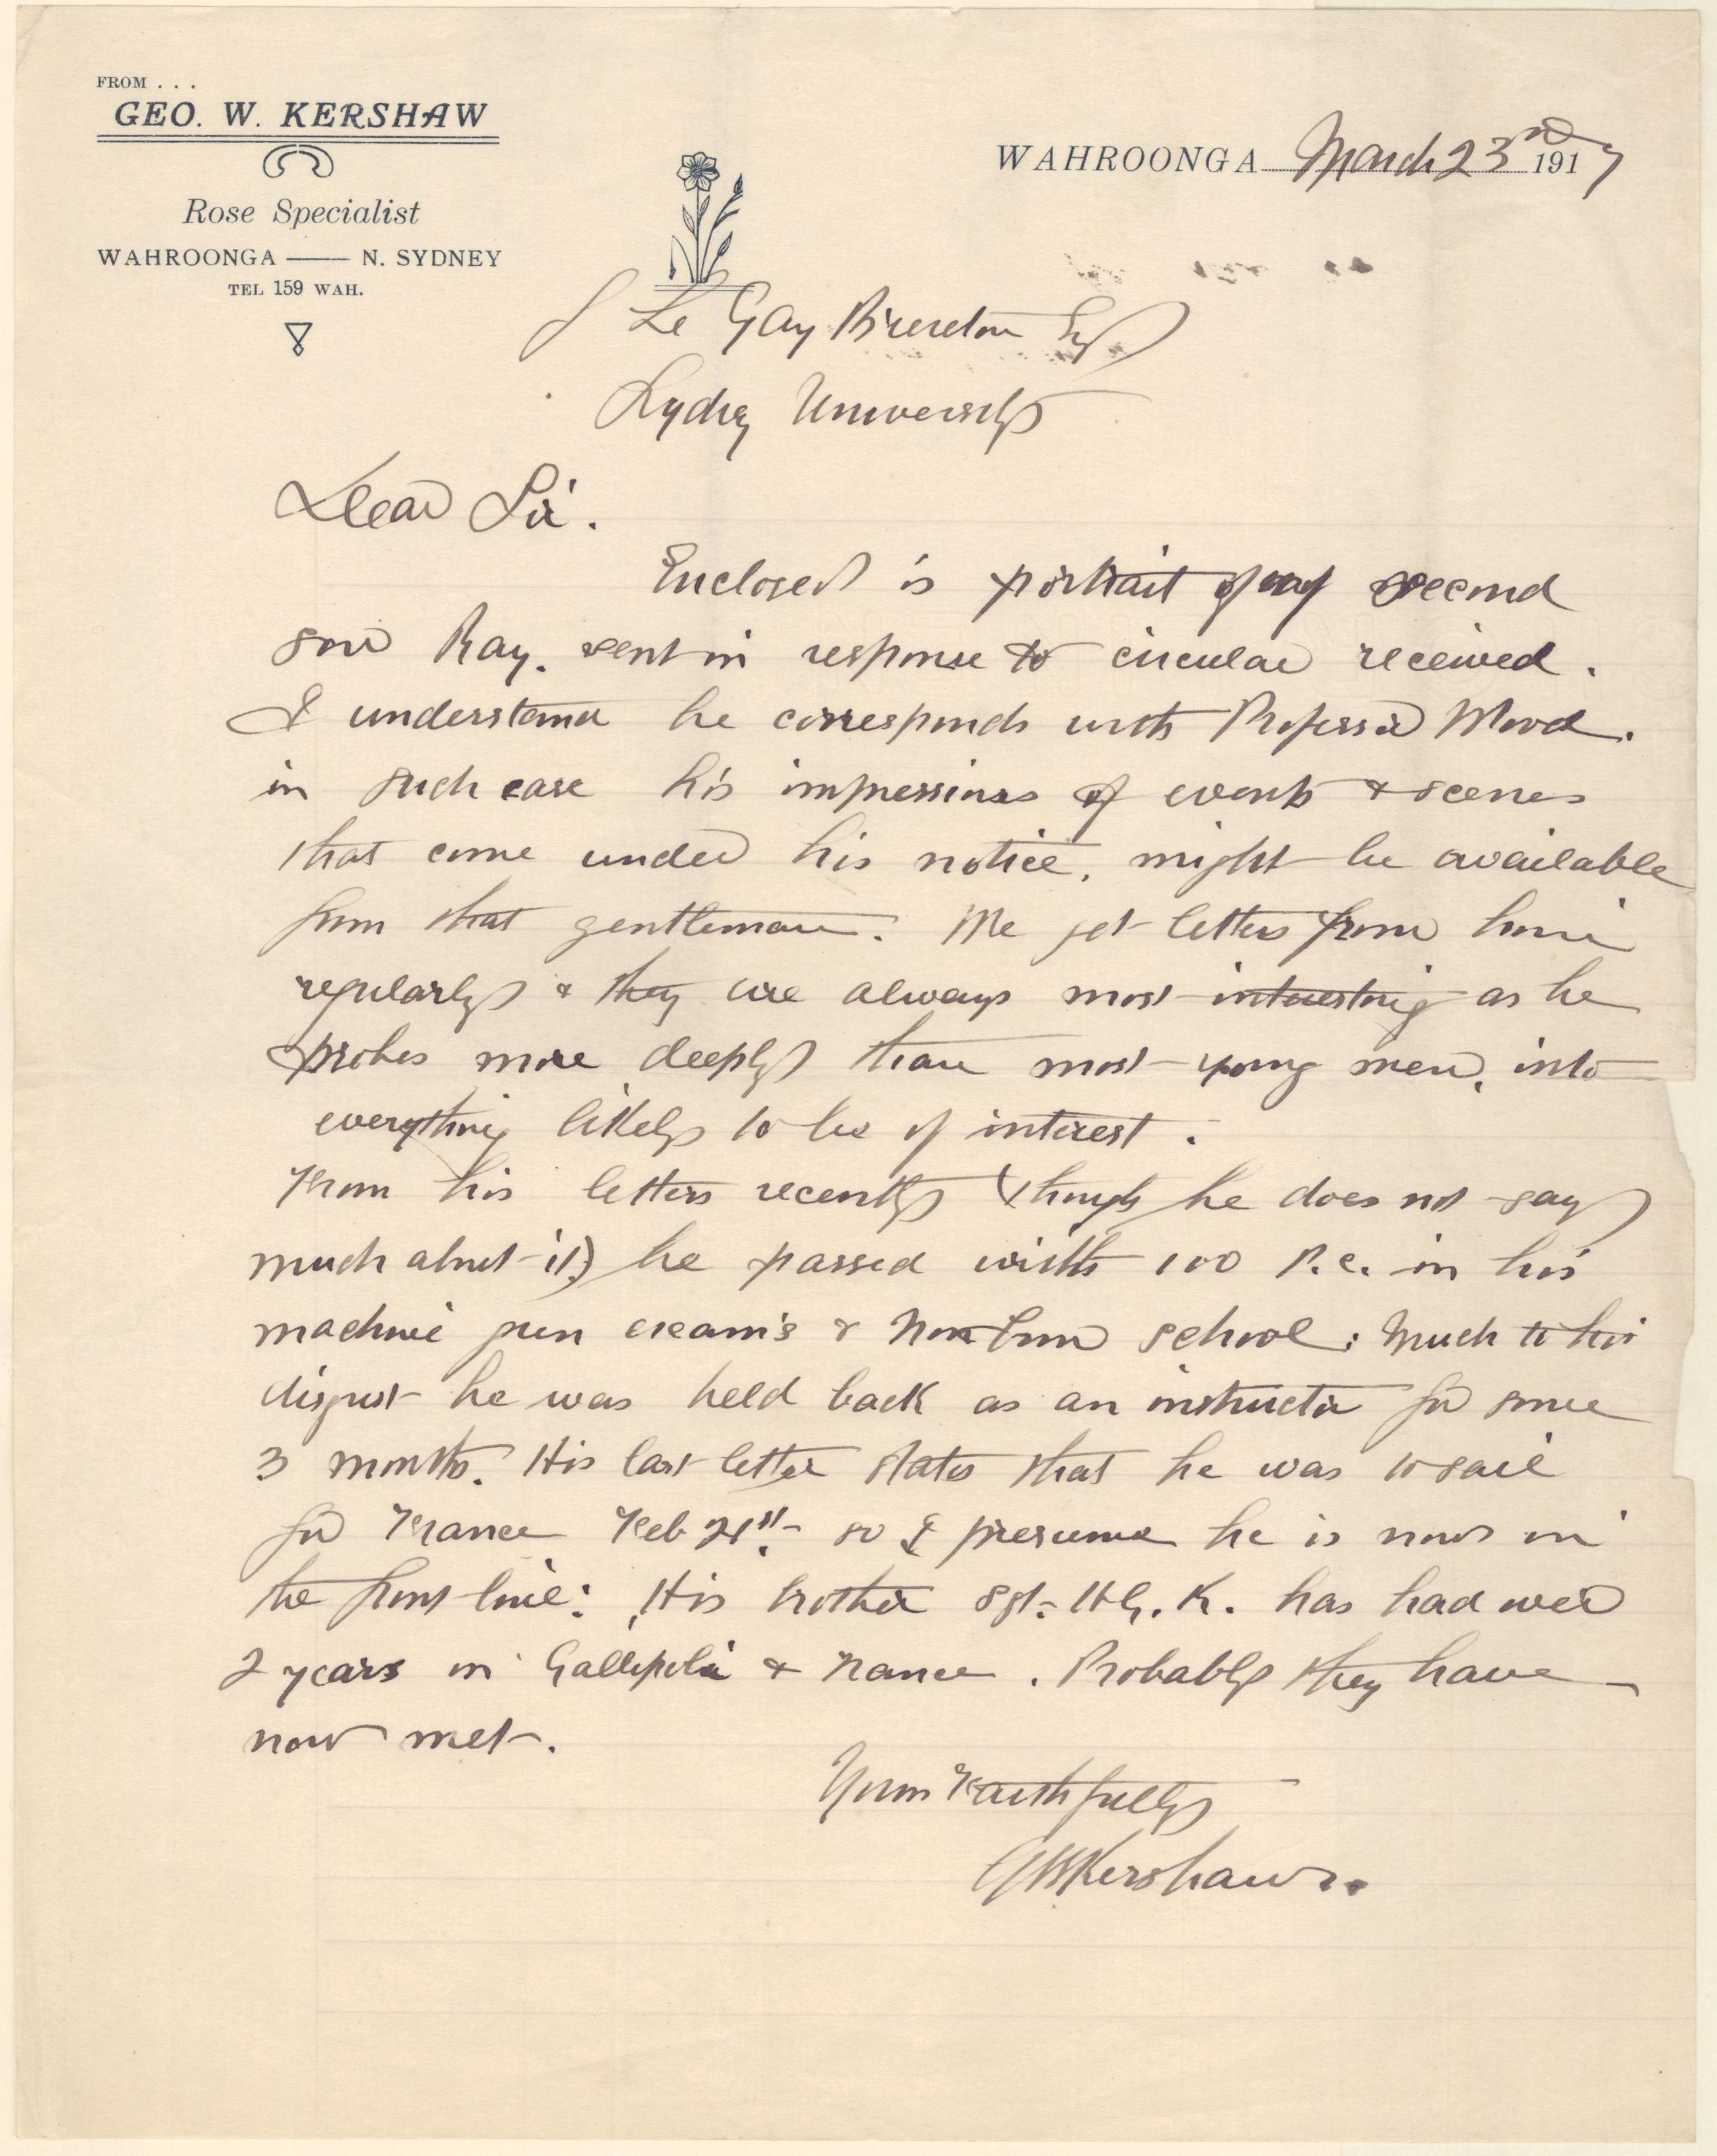 FROM . . .
GEO. W. KERSHAW
Rose Specialist
WAHROONGA — N. SYDNEY
TEL 159 WAH.
WAHROONGA March 23rd 1917
J Le Gay Brereton Esq
Sydney University
Dear Sir.
Enclosed is portrait of my second
son Ray. sent in response to circular received.
I understand he corresponds with Professor Wood.
in such case his impressions of events & scenes
that come under his notice, might be available
from that gentleman. We get letters from him
regularly & they are always most interesting as he
probes more deeply than most young men, into
everything likely to be of interest.
From his letters recently (though he does not say
much about it) he passed with 100 P.c. in his
machine gun exam's & school: Much to his
disgust he was held back as an instructor for some
3 months. His last letter states that he was to sail
for France Feb 21st. so I presume he is now in
the front line: His brother Sgt. H.G. K. has had over
2 years in Gallipoli & France. Probably they have
now met.
Yours Faithfully
GWKershaw.